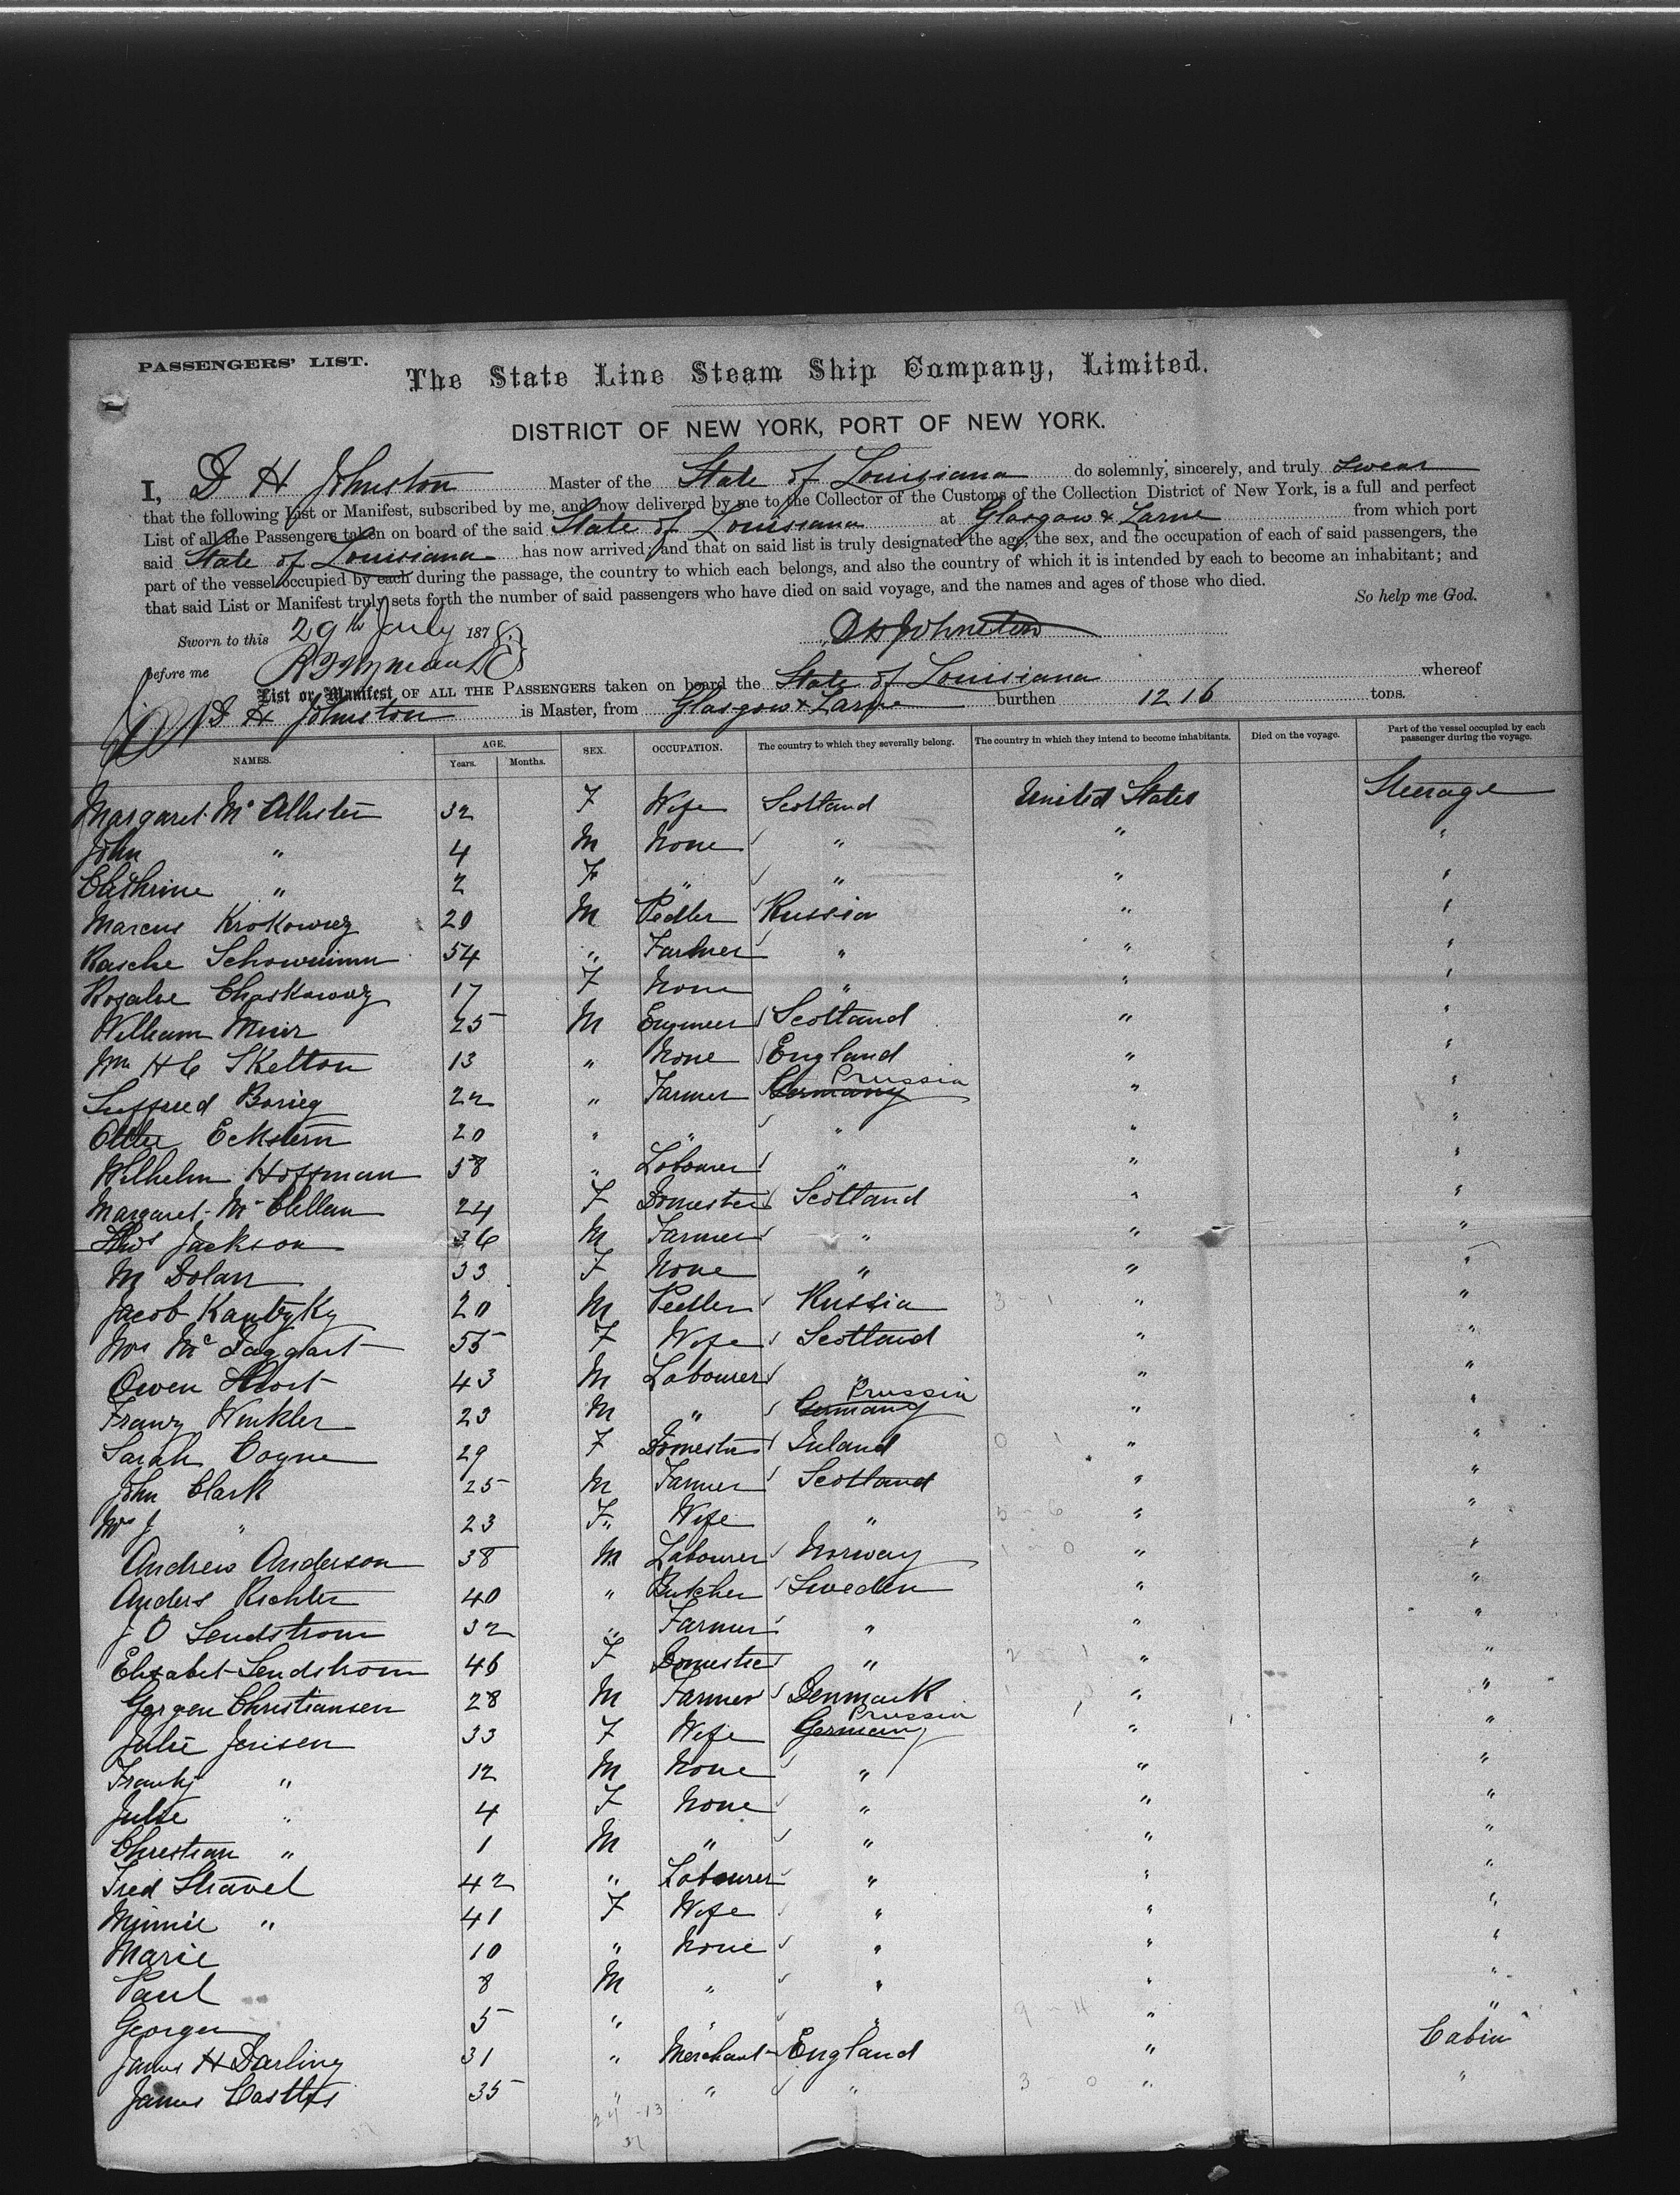 PASSENGERS' LIST.
The State Line Steam Ship Company, Limited.
DISTRICT OF NEW YORK, PORT OF NEW YORK.
I, D H Johnston Master of the State of Louisiana do solemnly, sincerely, and truly swear
that the following List or Manifest, subscribed by me, and now delivered by me to the Collector of the Customs of the Collection District of New York, is a full and perfect
List of all the Passengers taken on board of the said State of Louisiana at Glasgow & Larne from which port
said State of Louisiana has now arrived, and that on said list is truly designated the age, the sex, and the occupation of each of said passengers, the
part of the vessel occupied by each during the passage, the country to which each belongs, and also the country of which it is intended by each to become an inhabitant; and
that said List or Manifest truly sets forth the number of said passengers who have died on said voyage, and the names and ages of those who died.
So help me God.
Sworn to this 29th July 1878
D H Johnston
before me
List or Manifest OF ALL THE PASSENGERS taken on board the State of Louisiana whereof
D H Johnston is Master, from Glasgow & Larne burthen 1216 tons.
NAMES. AGE. Years. Months. SEX. OCCUPATION. The country to which they severally belong. The country in which they intend to become inhabitants. Died on the voyage. Part of the vessel occupied by each passenger during the voyage.
Margaret McAllister 32 F Wife Scotland United States Steerage
John " 4 M None " " "
Cathrine " 2 F " " " "
Marcus Krokowicz 20 M Pedler Russia " "
Rasche 54 " Farmer " " "
Rosalie 17 F None " " "
William Muir 25 M Engineer Scotland " "
Wm H C Skelton 13 " None England " "
22 " Farmer Germany Prussia " "
Eckstein 20 " " " " "
Wilhelm Hoffman 58 " Labourer " " "
Margaret McClellan 24 F Domestic Scotland " "
Thos Jackson 36 M Farmer " " "
M Dolan 33 F None " " "
Jacob 20 M Pedler Russia 3 - 1 " "
Mrs McTaggart 55 F Wife Scotland " "
Owen 43 M Labourer " " "
Franz Winkler 23 M " Germany Prussia " "
Sarah Coyne 29 F Domestic Ireland 0 1 " "
John Clark 25 M Farmer Scotland " "
Mrs J " 23 F Wife " " "
Andrew Anderson 38 M Labourer Norway 1 - 0 " "
Anders Richter 40 " Butcher Sweden " "
J O Lendstrom 32 " Farmer " " "
Elizabet Lendstrom 46 F Domestic " " "
Gorgen Christiansen 28 M Farmer Denmark " "
Julie Jensen 33 F Wife Germany Prussia " "
" 12 M None " " "
Julie " 4 F None " " "
Christian " 1 M " " " "
Fred Stravel 42 " Labourer " " "
Minnie " 41 F Wife " " "
Marie 10 " None " " "
Paul 8 M " " " "
George 5 " " " 9 - 4 " "
James H Darling 31 " Merchant England " Cabin
James Castles 35 " " " 3 - 0 " "
24 - 13
37